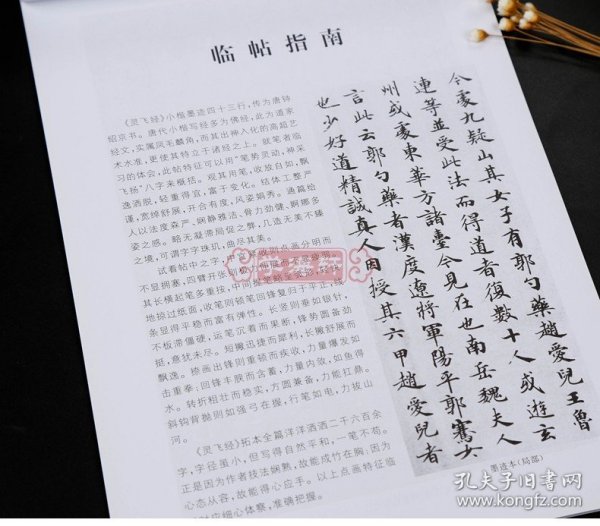 临帖指南
《灵飞经》小楷墨迹四十三行，传为唐钟
绍京书。唐代小楷写经多为佛经，此为道家
经文，实属凤毛麟角，而其出神入化的高超艺
术水准，更使其特立于诸经之上。就笔者临
习的体会，此帖特征可以用“笔势灵动，神采
飞扬”八字来概括。观其用笔，收放自如，飘
逸洒脱，轻重得宜，富于变化。结体工整严
谨，宽绰舒展，开合有度，风姿娟秀。通篇给
人以法度森严、娴静雅洁、骨力劲健、婀娜多
姿之感。略无凝滞局促之弊，几造无美不臻
之境，可谓字字珠玑，曲尽其美。
试看帖中之字，
点画分明而
不显拥塞，四臂开张
其长横起笔多重按，中间
地掠过纸面，收笔则顿笔回锋复归于平正，线
条显得平稳而富有弹性。长竖则垂如银针，
不板滞僵硬，运笔沉着而果断，锋势圆备劲
挺，意犹未尽。短撇迅捷而犀利，长撇舒展而
飘逸。捺画出锋则重顿而疾收，力量爆发如
击重拳；回锋丰腴而含蓄，力量内敛，如鱼得
水。转折粗壮而稳实，方圆兼备，力能扛鼎。
斜钩背抛则如强弓在握，行笔如电，力拔山
河。
《灵飞经》拓本全篇洋洋洒洒二千六百余
字，字径虽小，但写得自然平和，一笔不苟。
正是因为作者技法娴熟，故能成竹在胸；因为
心态从容，故能得心应手。以上点画特征临
应细心体察，准确把握。
今处九疑山其女子有郭勺药赵爱儿王鲁
連等並受此法而得道者復數十人或遊玄
州或處東華方諸臺今見在也南岳魏夫人
言此云郭勺藥者漢度遼將軍陽平郭騫女
也少好道精誠真人因授其六甲趙愛兒者
墨迹本(局部)
学案轩
孔夫子旧书网
www.kongfz.com